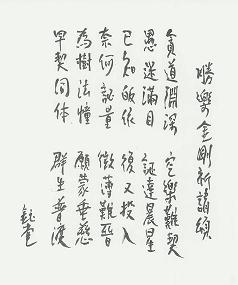 勝樂金剛祈請頌
貪道淵深 空樂難契
愚迷滿目 証達晨星
已知皈依 復又投入
奈何証量 微薄難晉
為樹法幢 願蒙垂慈
早契同体 群生普渡
鈺堂